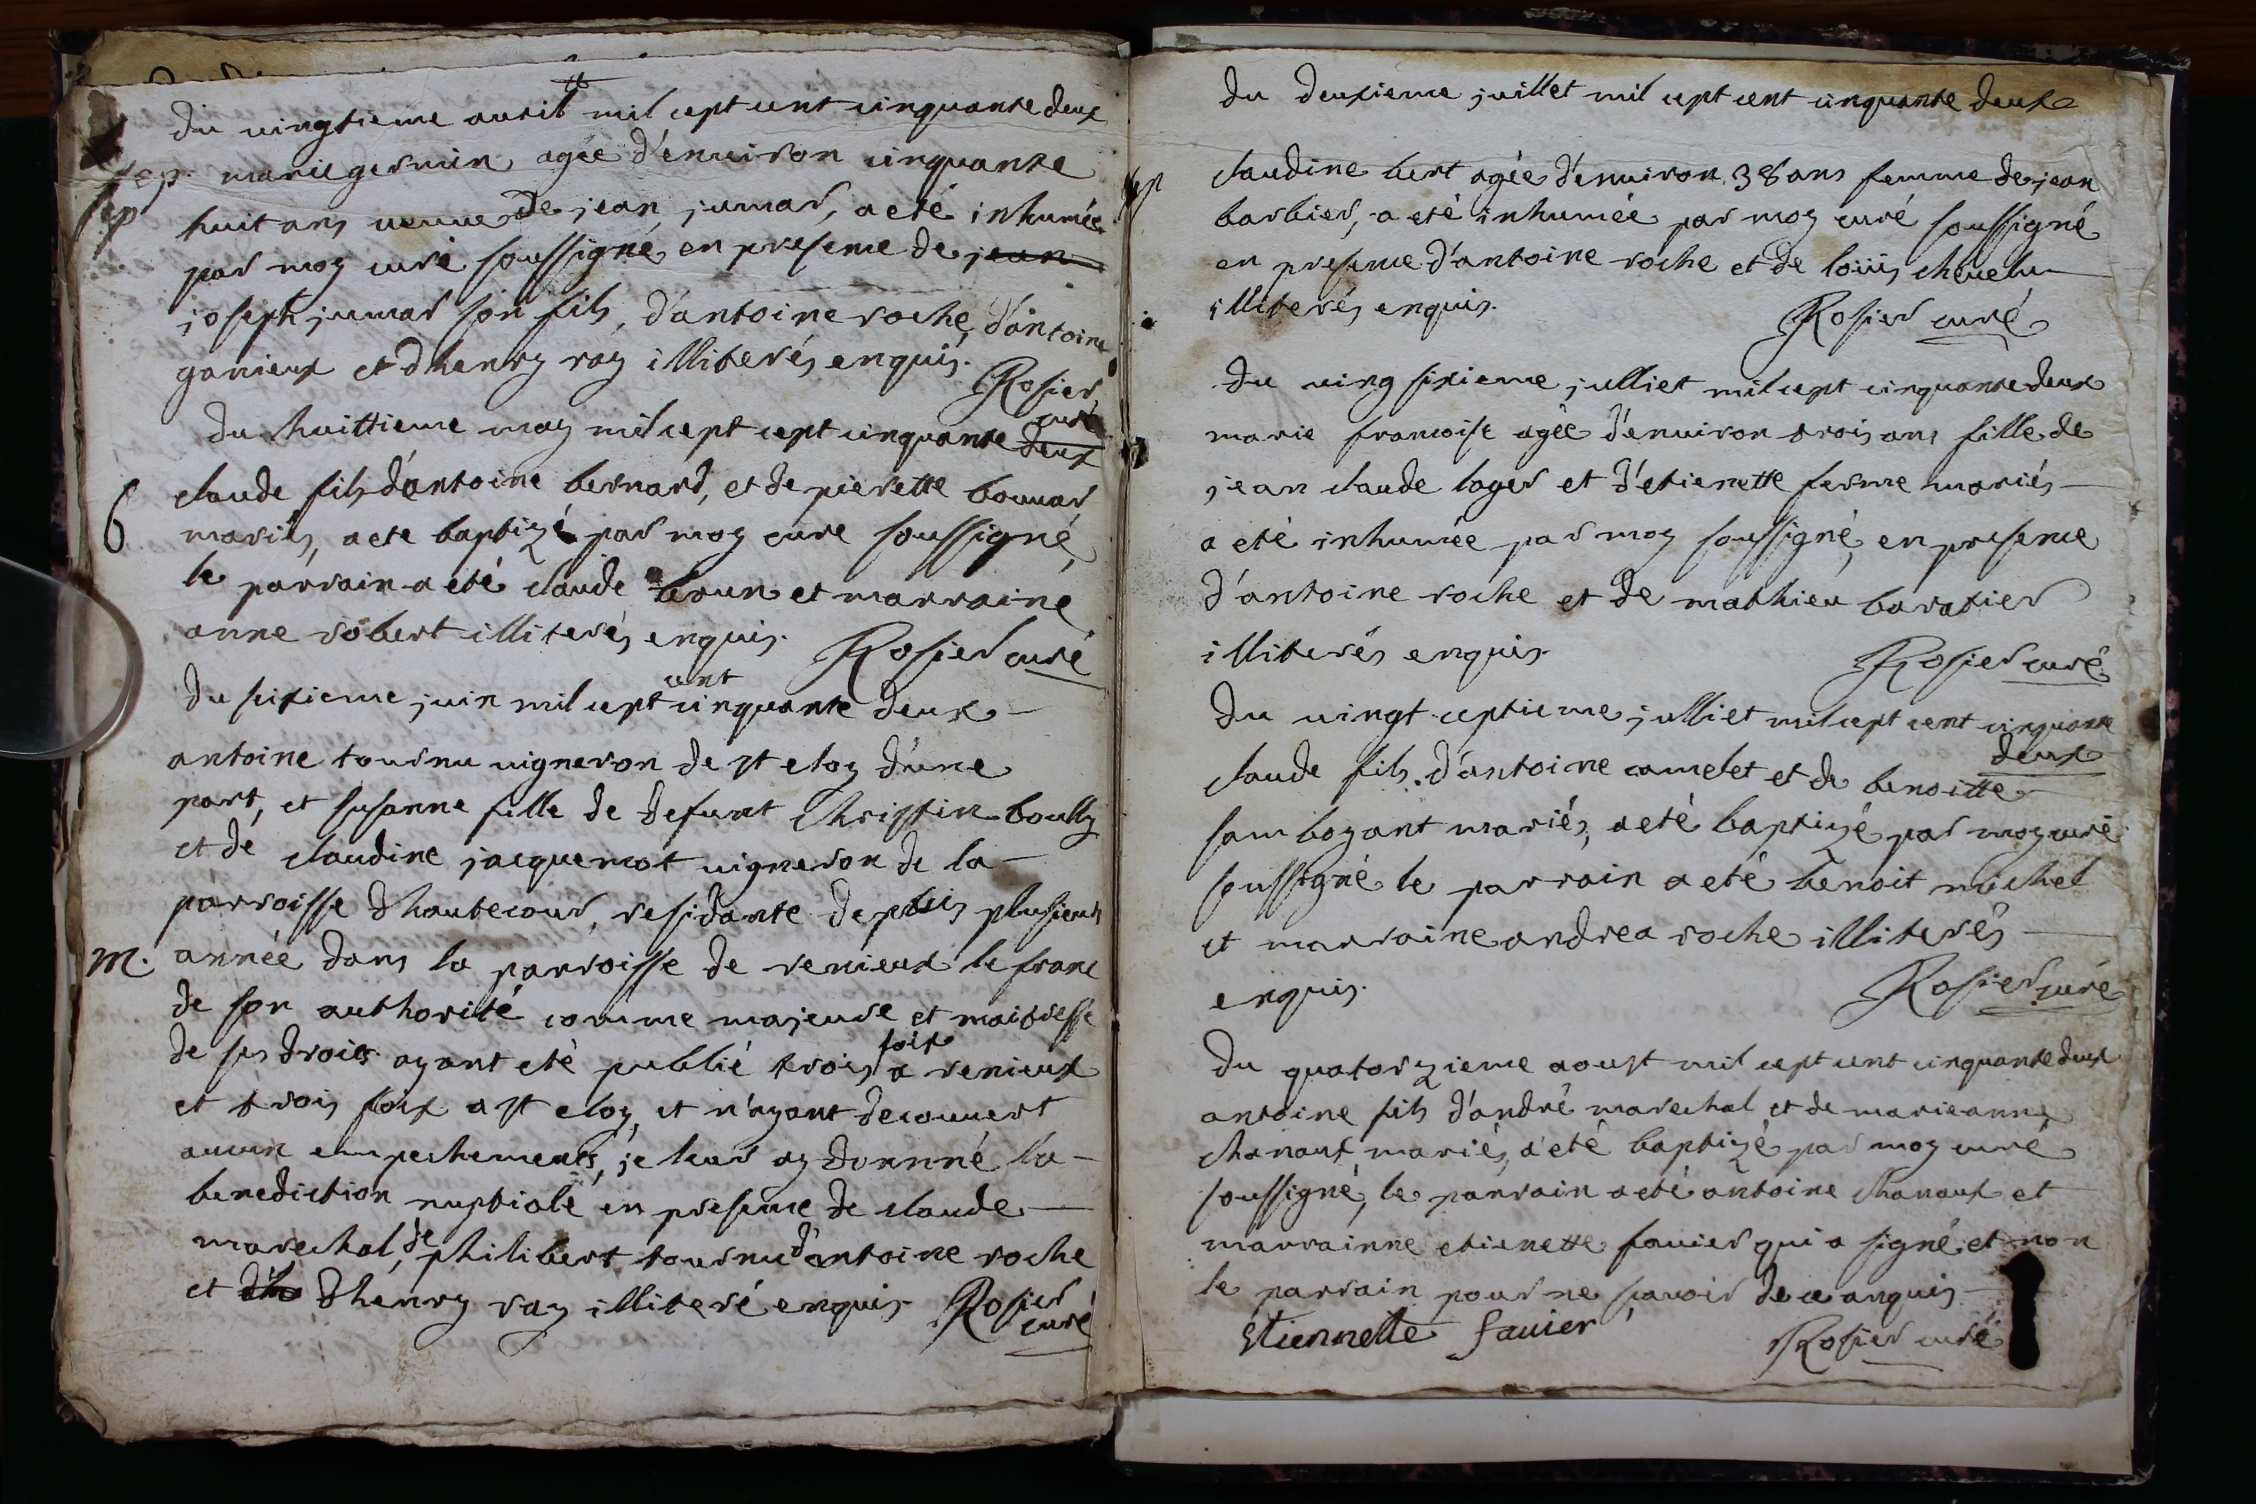 du vingtieme avril mil cept cent cinquante deux
sep. marie germin agée d'environ cinquante
sep huit ans veuve de jean jumar, a eté inhumée
par moy curé soussigné en presence de jean
joseph jumar son fils, d'antoine roche, d'antoine
ganieux et dhenry ray illiterés enquis.
Rosier
curé
du huittieme may mil cept cept cinquante deux
B claude fils d'antoine bernard, et de pierette bonnar
mariés, a ete baptizé par moy cure soussigné,
le parrain a eté claude brun et marraine
anne robert illiterés enquis. Rosier curé
cent
du sixieme juin mil cept cinquante deux
antoine tournu vigneron de st eloy d'une
part, et susanne fille de defunt Christin boully
et de claudine jacquemot vigneron de la
parroisse d'hautecour, residante depuis plusieurs
m. année dans la parroisse de renieux le franc
de son authorité comme majeure et maitresse
de ses droits ayant eté publié trois foix a renieux
et trois foix a st eloy, et n'ayant decouvert
aucun empechements, je leur ay donnné la
benediction nuptiale en presence de claude
marechal, de philibert tournu d'antoine roche
et dh dhenry ray illiteré enquis Rosier
curé
du deuxieme juillet mil cept cent cinquante deux
sep claudine bert agée d'environ 38 ans femme de jean
barbier, a eté inhumée par moy curé soussigné
en presence d'antoine roche et de loüis chevelu
illiterés enquis.
Rosier curé
du ving sixieme julliet mil cept cinquante deux
marie francoise agée d'environ trois ans fille de
jean claude loger et d'etienette ferme mariés
a eté inhumée par moy soussigné, en presence
d'antoine roche et de mathieu baratier
illiterés enquis.
Rosier curé
du vingt ceptieme julliet mil cept cent cinquante
deux
claude fils d'antoine camelet et de benoitte
sam boyant mariés, a eté baptizé par moy curé
soussigné le parrain a eté benoit michel
et marraine andrea roche illiterés
enquis.
Rosier curé
du quatorzieme aoust mil cept cent cinquante deux
antoine fils d'andré marechal et de marieanne
chanaux mariés, a eté baptizé par moy curé
soussigné, le parrain a eté antoine Chanaux et
marrainne etienette favier qui a signé et non
le parrain pour ne scavoir de ce anquis
Etiennette favier
Rosier curé